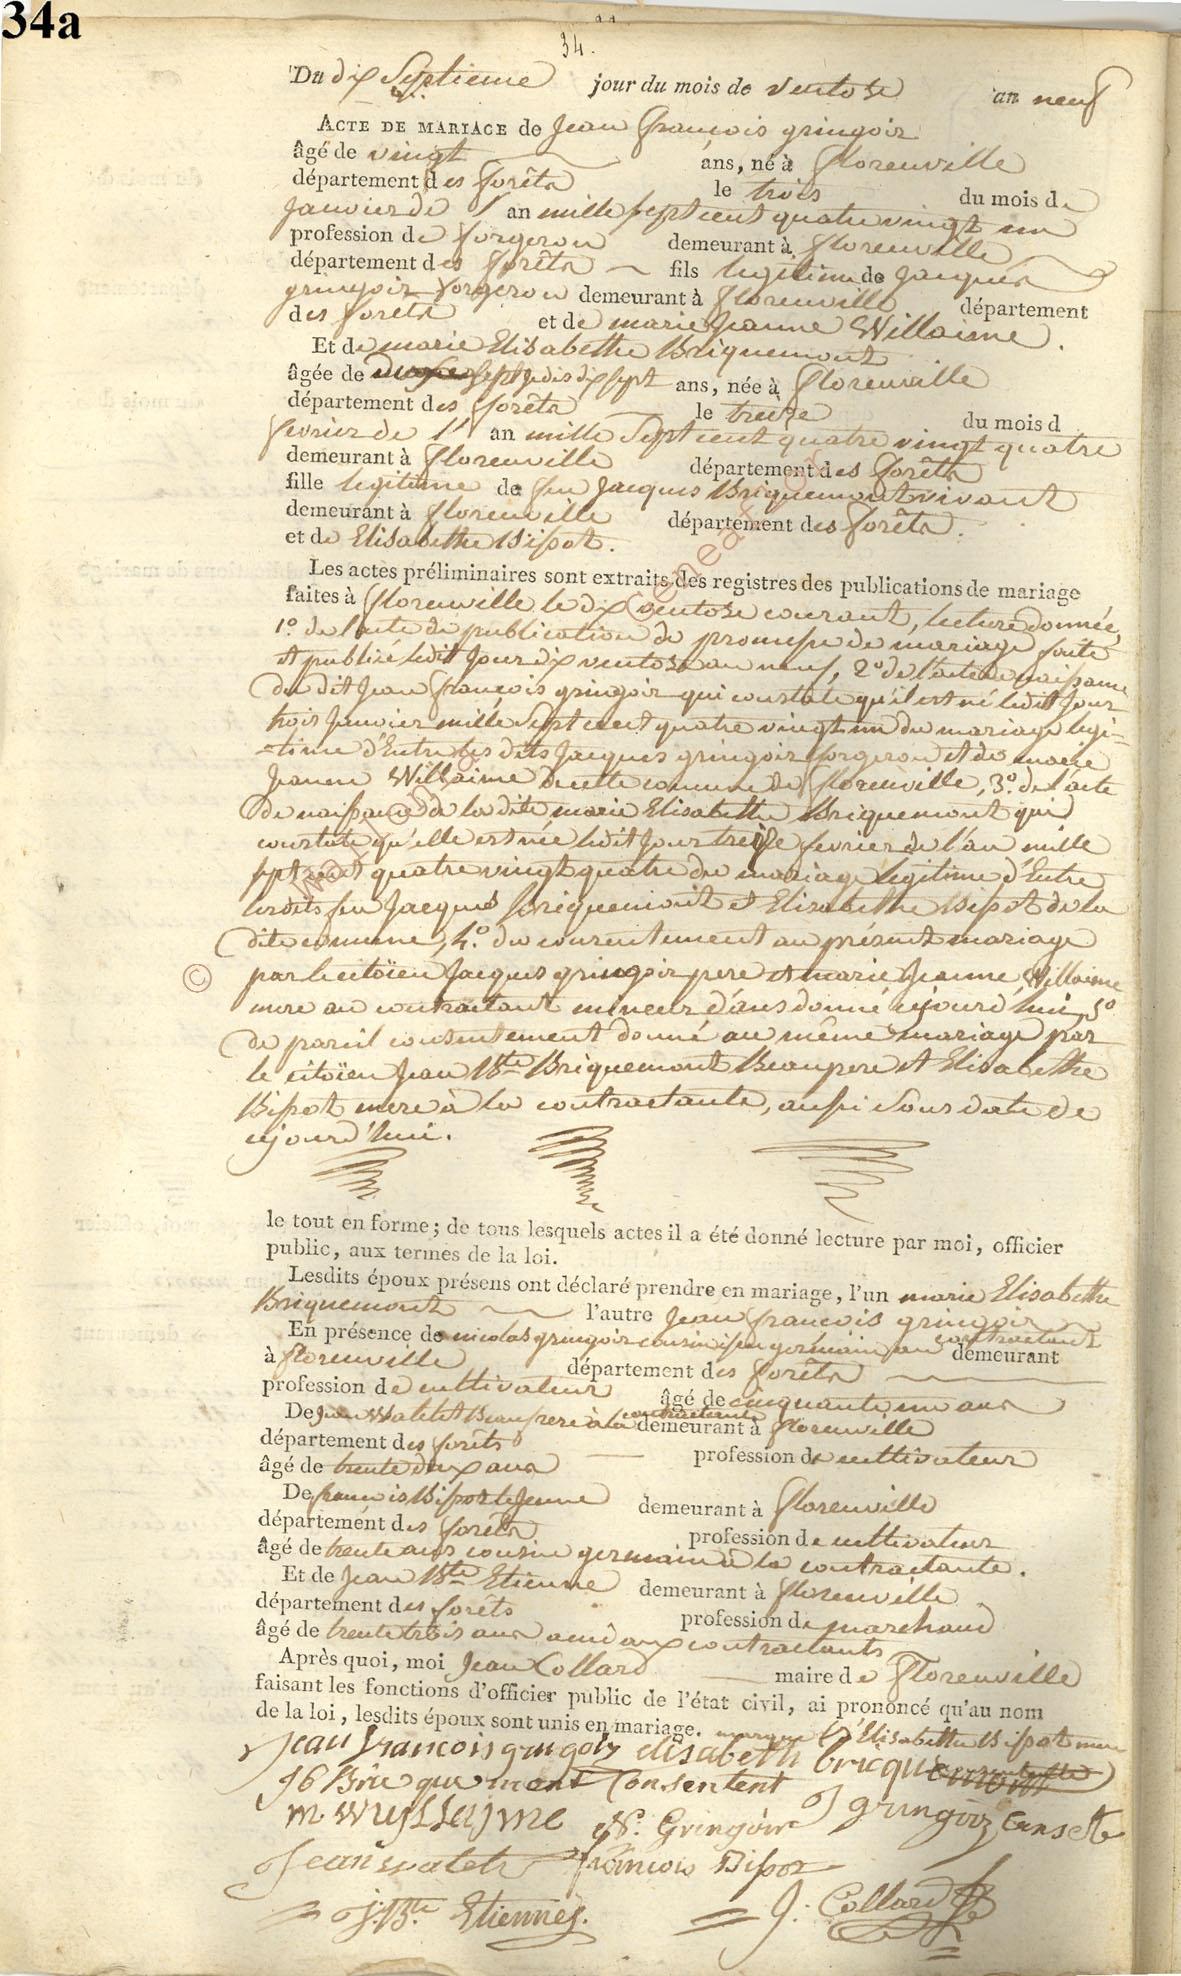 34a
34.
Du dix Septieme jour du mois de ventose an neuf
ACTE DE MARIAGE de Jean françois gringoir
âgé de vingt ans, né à florenville
département des forêts le trois du mois de
Janvier de l'an mille sept cent quatre vingt un
profession de forgeron demeurant à florenville
département des forêts fils legitime de Jacques
gringoir forgeron demeurant à florenville département
des forêts et de marie Jeanne Willaime.
Et de marie Elisabethe Briquemont
âgée de sept je dis dix sept ans, née à florenville
département des forêts le treize du mois d
fevrier de l'an mille Sept cent quatre vingt quatre
demeurant à florenville département des forêts
fille legitime de feu Jacques Briquemont vivant
demeurant à florenville département des forêts.
et de Elisabethe Bissot.
Les actes préliminaires sont extraits des registres des publications de mariage
faites à florenville le dix ventose courant, lecture donnée,
1º. de l'acte de publication de promesse de mariage faite
et publié ledit Jour dix ventose an neuf, 2º de l'acte de naissance
du dit Jean françois gringoir qui constate qu'il est né ledit Jour
trois Janvier mille Sept cent quatre vingt un du mariage legi-
-time d'Entre les dits Jacques gringoir forgeron et de marie
Jeanne Willaime de cette commune de florenville, 3º. de l'acte
de naissance de la dite marie Elisabethe Briquemont qui
constate qu'elle est née ledit Jour treize fevrier de l'an mille
sept cent quatre vingt quatre du mariage legitime d'Entre
lesdits feu Jacques Briquemont et Elisabethe Bissot de la
dite commune, 4º. du consentement au présent mariage
par le citoïen Jacques gringoir pere et marie Jeanne Willaime
mere au contractant mineur d'ans donné cejourd'hui, 5º
de pareil consentement donné au même mariage par
le citoïen Jean Bte Briquemont Beaupere et Elisabethe
Bissot mere à la contractante, aussi Sous date de
cejourd'hui.
le tout en forme; de tous lesquels actes il a été donné lecture par moi, officier
public, aux termes de la loi.
Lesdits époux présens ont déclaré prendre en mariage, l'un marie Elisabethe
Briquemont l'autre Jean françois gringoir
En présence de nicolas gringoir cousin issu germain au contractant demeurant
à florenville département des forêts
profession de cultivateur âgé de cinquante un ans
De Jean Watelet Beaufrere à la contractante demeurant à florenville
département des forêts profession de cultivateur
âgé de trente deux ans
De françois Bissot le Jeune demeurant à florenville
département des forêts profession de cultivateur
âgé de trente ans cousin germain à la contractante.
Et de Jean Bte Etienne demeurant à florenville
département des forêts profession de marchand
âgé de trente trois ans ami aux contractants
Après quoi, moi Jean Collard maire de florenville
faisant les fonctions d'officier public de l'état civil, ai prononcé qu'au nom
de la loi, lesdits époux sont unis en mariage. marque d'Elisabethe Bissot mere
Jean francois gringoir elisabeth bricquemont
Consentent
J gringoir
N. Gringoir
françois Bissot
J. Bte Etienne
J. Collard